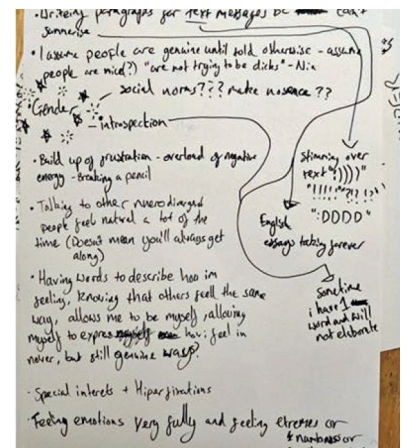 • Writeing paragraphs for text messages bc can't
summerise
• I assume people are genuine until told otherwise - assume
people are nice(?) "are not trying to be dicks" - Nia
Gender
social norms??? make no sence??
- introspection
• Build up of frustration - overload of negative
energy - Breaking a pencil
• Talking to other nuerodiverged
people feel natural a lot of the
time (Doesn't mean you'll always get
along)
• Having words to describe hoo im
feeling, knowing that others feell the same
way, allows me to be myself, allowing
myself to expres how i feel in
never, but still genuine ways?
• Special interets + Hiperfixations
• Feeling emotions very fully and feeling etremes or
numbness or
Stimming over
text "))))"
"!!!!"
":DDDD"
English
essays taking forever
Sometime
i have 1
word and will
not elaborate